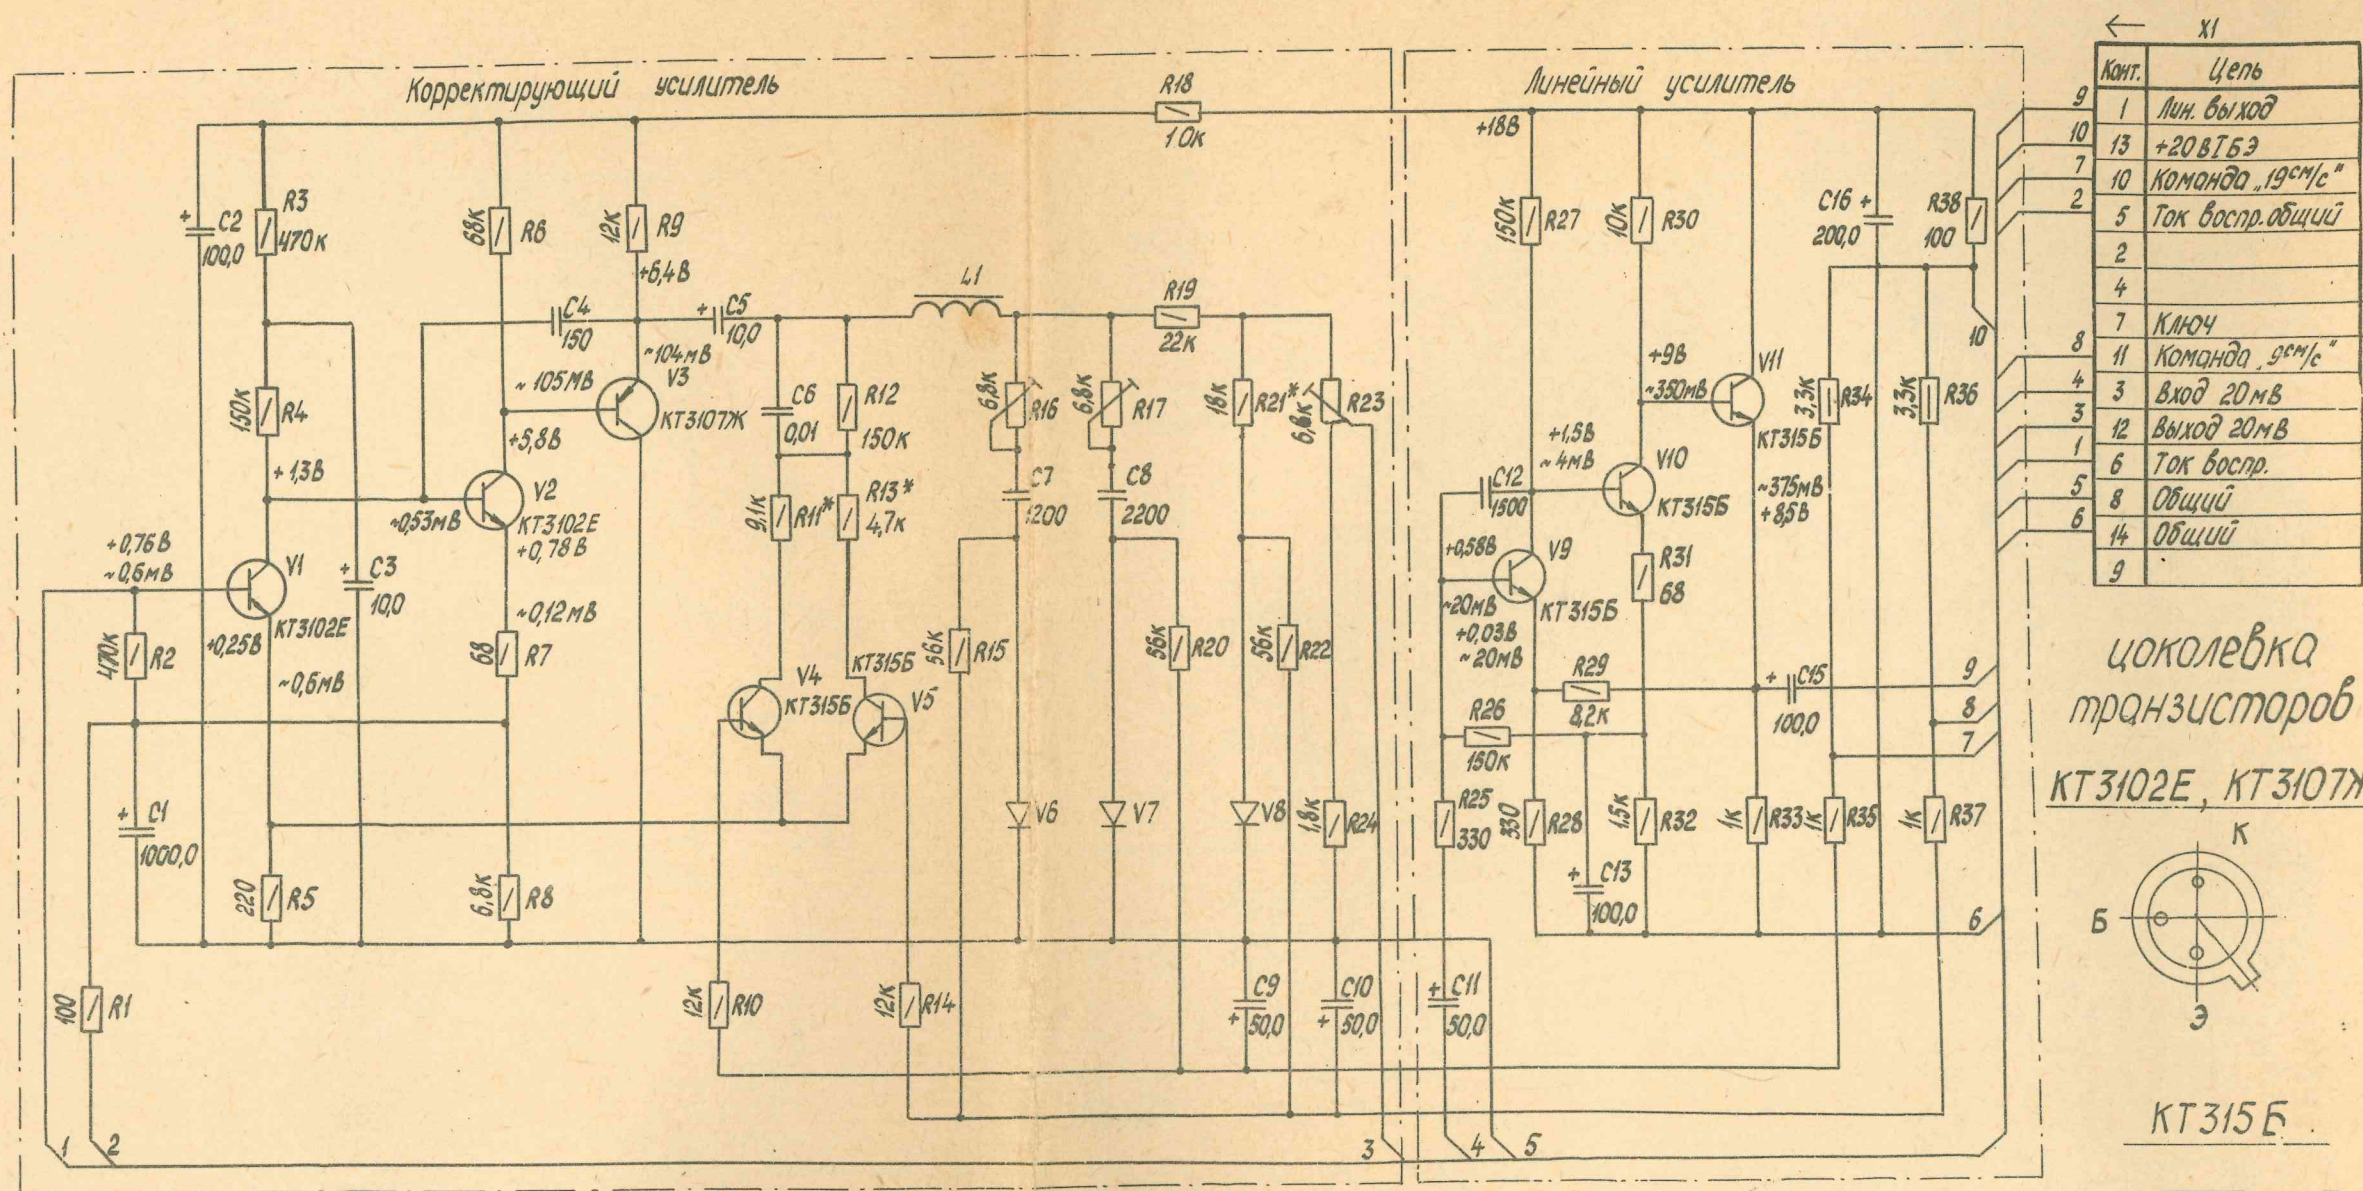 Корректирующий усилитель
Линейный усилитель
R18
10к
+18В
C2
100,0
R3
470к
68к
R6
12к
R9
+6,4В
C4
150
C5
10,0
L1
R19
22к
~104мВ
V3
КТ3107Ж
~105мВ
+5,8В
150к
R4
+1,3В
C6
0,01
R12
150к
6,8к
R16
6,8к
R17
18к
R21*
6,8к
R23
V2
КТ3102Е
+0,78В
~0,53мВ
9,1к
R11*
R13*
4,7к
C7
1200
C8
2200
+0,76В
~0,6мВ
V1
КТ3102Е
+0,25В
~0,6мВ
C3
10,0
~0,12мВ
68
R7
470к
R2
V4
КТ315Б
КТ315Б
V5
56к
R15
56к
R20
56к
R22
C1
1000,0
220
R5
6,8к
R8
V6
V7
V8
1,8к
R24
100
R1
12к
R10
12к
R14
C9
50,0
C10
50,0
C11
50,0
1
2
3
4
5
150к
R27
10к
R30
C16
200,0
R38
100
10
+9В
~350мВ
V11
КТ315Б
3,3к
R34
3,3к
R36
+1,5В
~4мВ
V10
КТ315Б
C12
1500
~375мВ
+8,5В
+0,58В
V9
КТ315Б
~20мВ
+0,03В
~20мВ
R31
68
R29
8,2к
R26
150к
C15
100,0
9
8
7
R25
330
330
R28
1,5к
R32
1к
R33
1к
R35
1к
R37
C13
100,0
6
X1
Конт. Цепь
9 1 Лин. выход
10 13 +20В IБЭ
7 10 Команда „19см/с"
2 5 Ток воспр. общий
2
4
7 Ключ
8 11 Команда „9см/с"
4 3 Вход 20мВ
3 12 Выход 20мВ
1 6 Ток воспр.
5 8 Общий
6 14 Общий
9
цоколевка
транзисторов
КТ3102Е, КТ3107Ж
К
Б
Э
КТ315Б